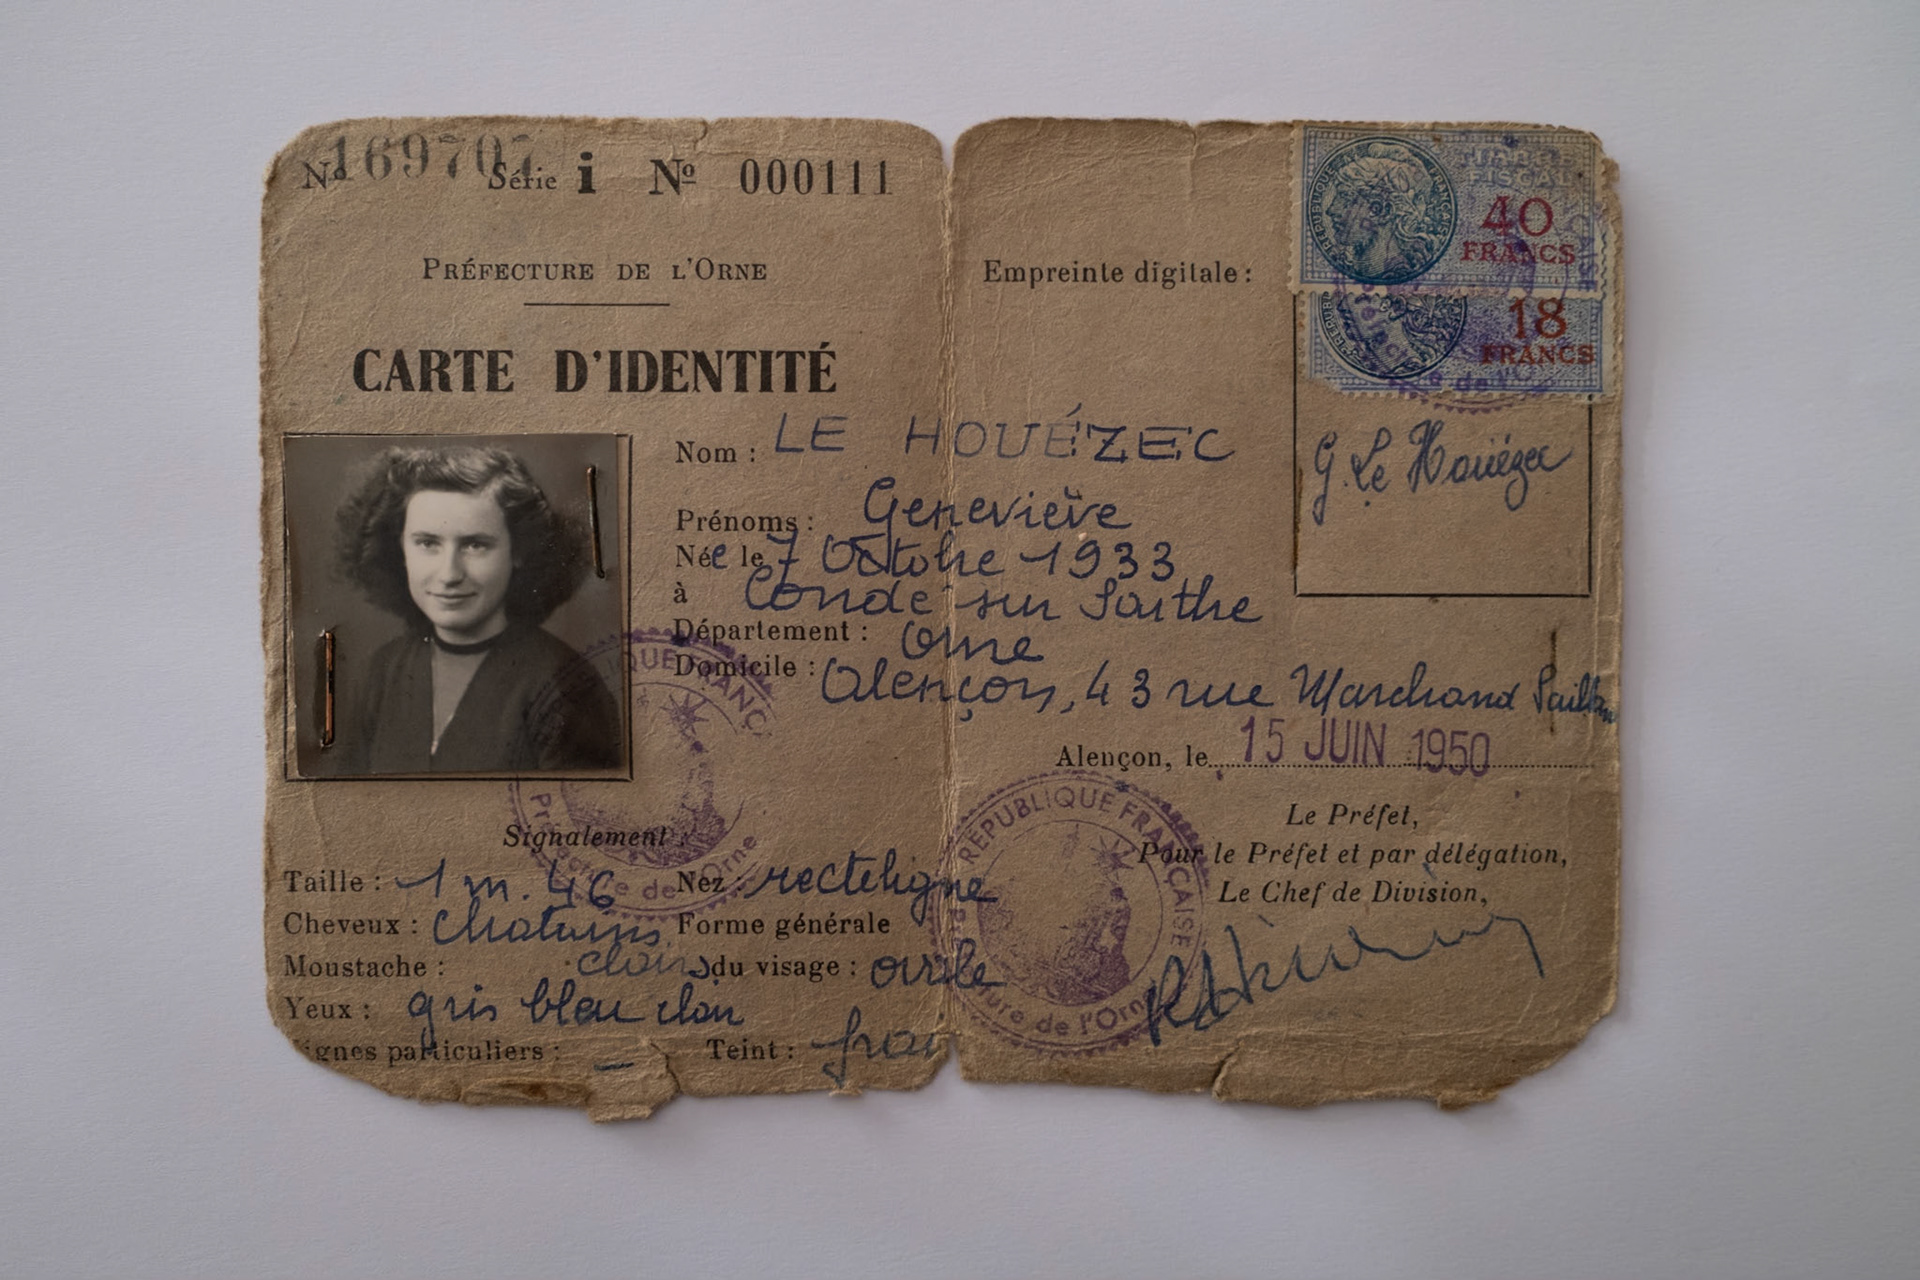 Nº 169707 Série i Nº 000111
PRÉFECTURE DE L'ORNE
CARTE D'IDENTITÉ
Nom : LE HOUÉZEC
Prénoms : Geneviève
Née le 7 Octobre 1933
à Condé sur Sarthe
Département : Orne
Domicile : Alençon, 43 rue Marchand Saillant
Signalement :
Taille : 1 m. 46 Nez : rectiligne
Cheveux : Chatains Forme générale
Moustache : clairs du visage : ovale
Yeux : gris bleu clair
Signes particuliers : – Teint : frais
Empreinte digitale :
TIMBRE
FISCAL
40
FRANCS
RÉPUBLIQUE FRANÇAISE
18
FRANCS
G. Le Houézec
Alençon, le 15 JUIN 1950
Le Préfet,
Pour le Préfet et par délégation,
Le Chef de Division,
RÉPUBLIQUE FRANÇAISE
Préfecture de l'Orne
RÉPUBLIQUE FRANÇAISE
Préfecture de l'Orne